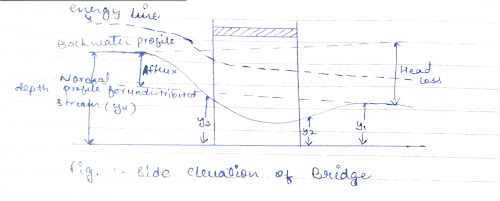 energy line
Backwater profile
Afflux
Head
Loss
Normal
depth profile for undistributed
stream (y4)
y3
y2
y1
Fig. :- Side elevation of Bridge